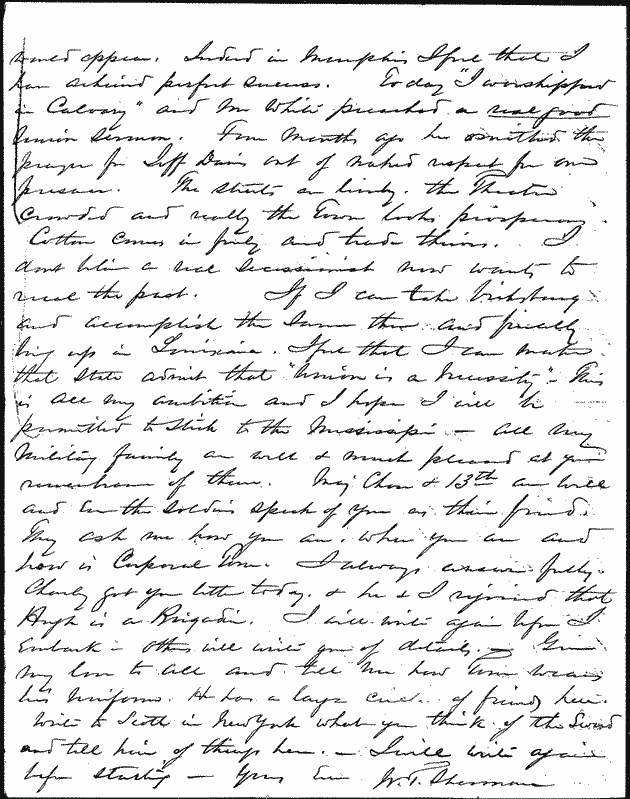 would appear. Indeed in Memphis I feel that I
have achieved perfect success. Today "I worshipped
in Calvary" and Mr White preached a real good
Union Sermon. Four Months ago he omitted the
prayer for Jeff Davis out of naked respect for our
presence. The streets are lively. the Theatre
crowded and really the Town looks prosperous.
Cotton comes in freely and trade thrives. I
dont blame a real Secessionist now wants to
recall the past. If I can take Vicksburg
and accomplish the same there and finally
bring up in Louisiana. I feel that I can make
that State admit that "Union is a Necessity". This
is all my ambition and I hope I will be
permitted to stick to the Mississippi — all my
Military family are well & much pleased at your
remembrance of them. Maj Chase & 13th are well
and Even the soldiers speak of you as their friend.
They ask me how you are, where you are and
how is Corporal Tom. I always answer fully.
Charley got your letter today. & he & I rejoiced that
Hugh is a Brigadier. I will write again before I
Embark — others will write you of details. — Give
my love to all and tell me how Tom wears
his Uniform. He has a large circle of friends here.
Write to Scott in New York what you think of the Sword
and tell him of things here. — I will write again
before starting — Yours Ever W. T. Sherman